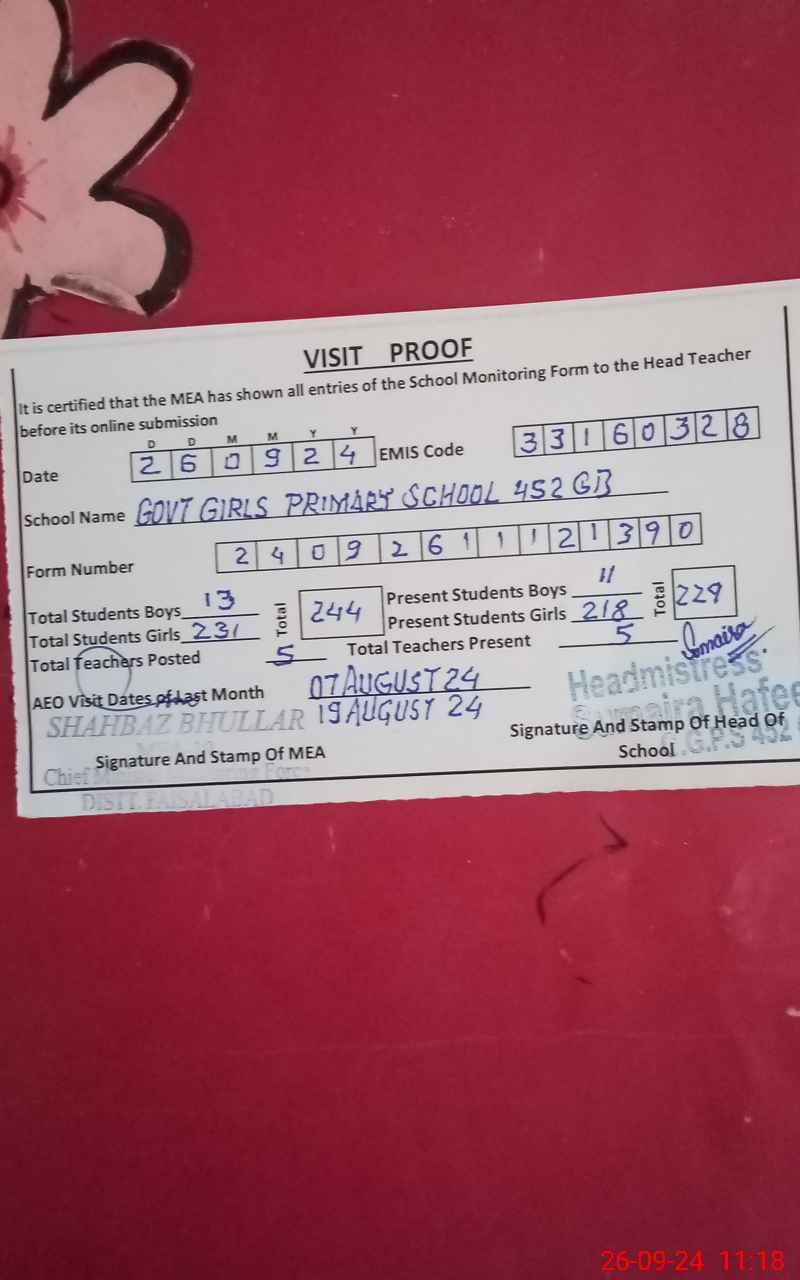 VISIT PROOF
It is certified that the MEA has shown all entries of the School Monitoring Form to the Head Teacher
before its online submission
D D M M Y Y
Date 260924 EMIS Code 33160328
School Name GOVT GIRLS PRIMARY SCHOOL 452 GB
Form Number 24092611121390
Total Students Boys 13 Total 244 Present Students Boys 11 Total 229
Total Students Girls 231 Present Students Girls 218
Total Teachers Posted 5 Total Teachers Present 5
AEO Visit Dates of Last Month 07 AUGUST 24
19 AUGUST 24
SHAHBAZ BHULLAR
Headmistress
Sumaira Hafee
G.G.P.S 452
Signature And Stamp Of MEA
Signature And Stamp Of Head Of
School
Chief
DISTT. FAISALABAD
26-09-24 11:18